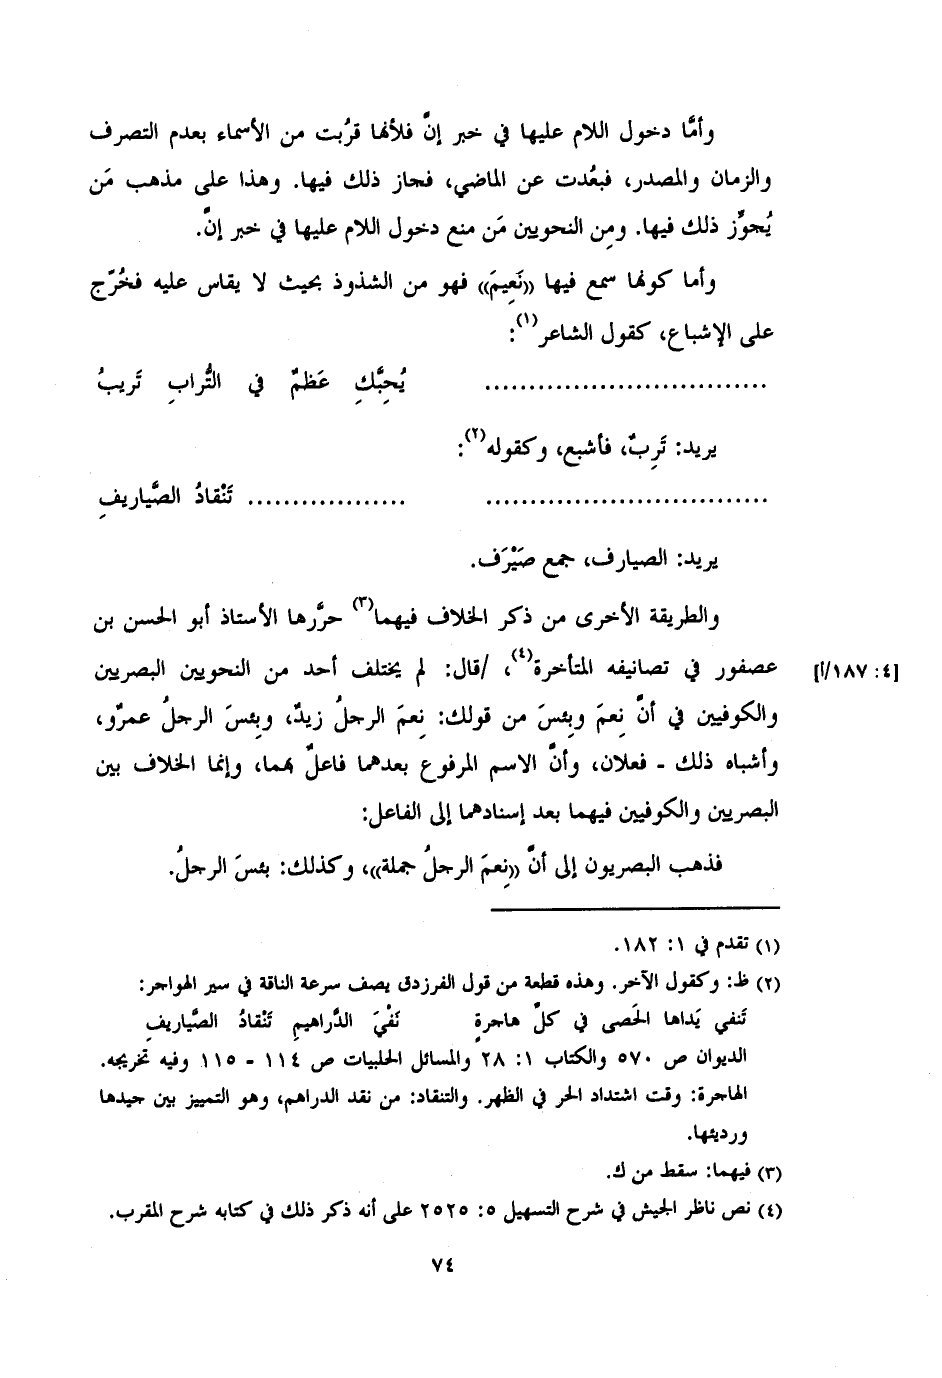 وأمَّا دخول اللام عليها في خبر إنَّ فلأنها قرُبت من الأسماء بعدم التصرف
والزمان والمصدر، فبعُدت عن الماضي، فجاز ذلك فيها. وهذا على مذهب مَن
يُجوِّز ذلك فيها. ومِن النحويين مَن منع دخول اللام عليها في خبر إنَّ.
وأما كونها سمع فيها «نَعِيمَ» فهو من الشذوذ بحيث لا يقاس عليه فخُرِّج
على الإشباع، كقول الشاعر(١):
............................... يُحِبَّكِ عَظمٌ في التُّرابِ تَرِيبُ
يريد: تَرِبٌ، فأشبع، وكقوله(٢):
............................... .................. تَنْقادُ الصَّيارِيفِ
يريد: الصيارف، جمع صَيْرَف.
والطريقة الأخرى من ذكر الخلاف فيهما(٣) حرَّرها الأستاذ أبو الحسن بن
عصفور في تصانيفه المتأخرة(٤)، /قال: لم يختلف أحد من النحويين البصريين [٤: ١٨٧/أ]
والكوفيين في أنَّ نِعمَ وبِئسَ من قولك: نِعمَ الرجلُ زيدٌ، وبِئسَ الرجلُ عمرٌو،
وأشباه ذلك - فعلان، وأنَّ الاسم المرفوع بعدهما فاعلٌ بهما، وإنما الخلاف بين
البصريين والكوفيين فيهما بعد إسنادهما إلى الفاعل:
فذهب البصريون إلى أنَّ «نِعمَ الرجلُ جملة»، وكذلك: بئسَ الرجلُ.
(١) تقدم في ١: ١٨٢.
(٢) ظ: وكقول الآخر. وهذه قطعة من قول الفرزدق يصف سرعة الناقة في سير الهواجر:
تَنفي يَداها الحَصى في كلِّ هاجرةٍ نَفْيَ الدَّراهيمِ تَنْقادُ الصَّيارِيفِ
الديوان ص ٥٧٠ والكتاب ١: ٢٨ والمسائل الحلبيات ص ١١٤ - ١١٥ وفيه تخريجه.
الهاجرة: وقت اشتداد الحر في الظهر. والتنقاد: من نقد الدراهم، وهو التمييز بين جيدها
ورديئها.
(٣) فيهما: سقط من ك.
(٤) نص ناظر الجيش في شرح التسهيل ٥: ٢٥٢٥ على أنه ذكر ذلك في كتابه شرح المقرب.
٧٤